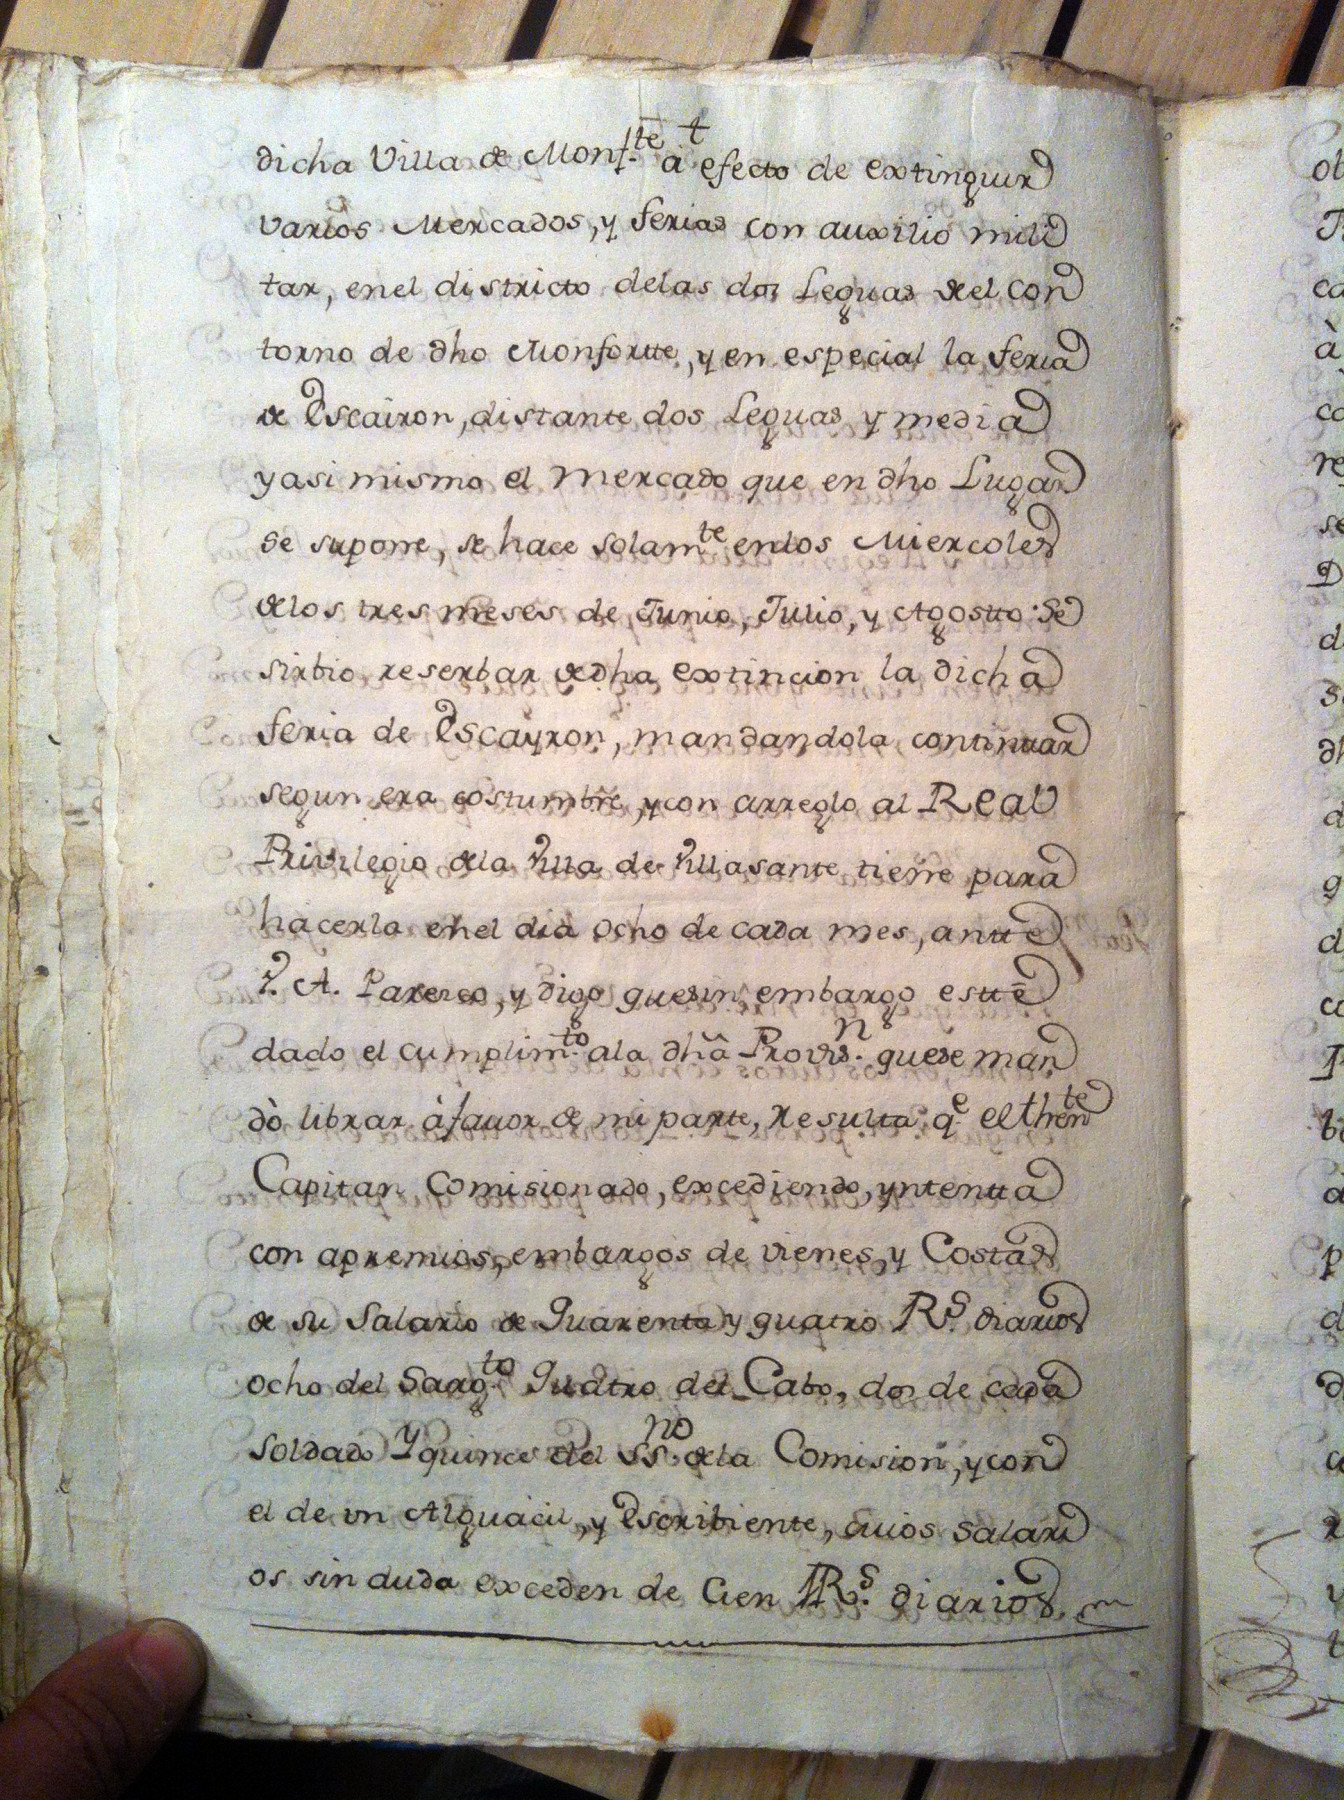 dicha Villa de Monf.te á efecto de extinguir
varios Mercados, y ferias con auxilio mili
tar, enel districto delas dos Leguas del con
torno de dho Monfortte, y en especial la feria
de Escairon, distante dos Leguas y media
y asi mismo el mercado que en dho Lugar
se supone, se hace solamte enlos Miercoles
delos tres meses de Junio, Julio, y Agostto. Se
sirbio reserbar dedha extincion la dicha
feria de Escayron, mandandola continuar
segun era costumbre, y con arreglo al Real
Privilegio dela Villa de Villasante tiene para
hacerla enel dia ocho de cada mes, antte
V. A. Parezco, y digo quesin embargo estte
dado el cumplim.to ala dhâ Provis.n quese man
dò librar à favor de mi parte, resulta q.e el thente
Capitan Comisionado, excediendo, yntentta
con apremios, embargos de vienes, y Costas
de su Salario de Quarenta y quatro R.s diarios
ocho del Sarg.to Quatro del Cabo, dos de cada
Soldado Y quince del SS.no dela Comision, y con
el de vn Alguacil, y Escribiente, cuios salari
os sin duda exceden de Cien R.s diarios